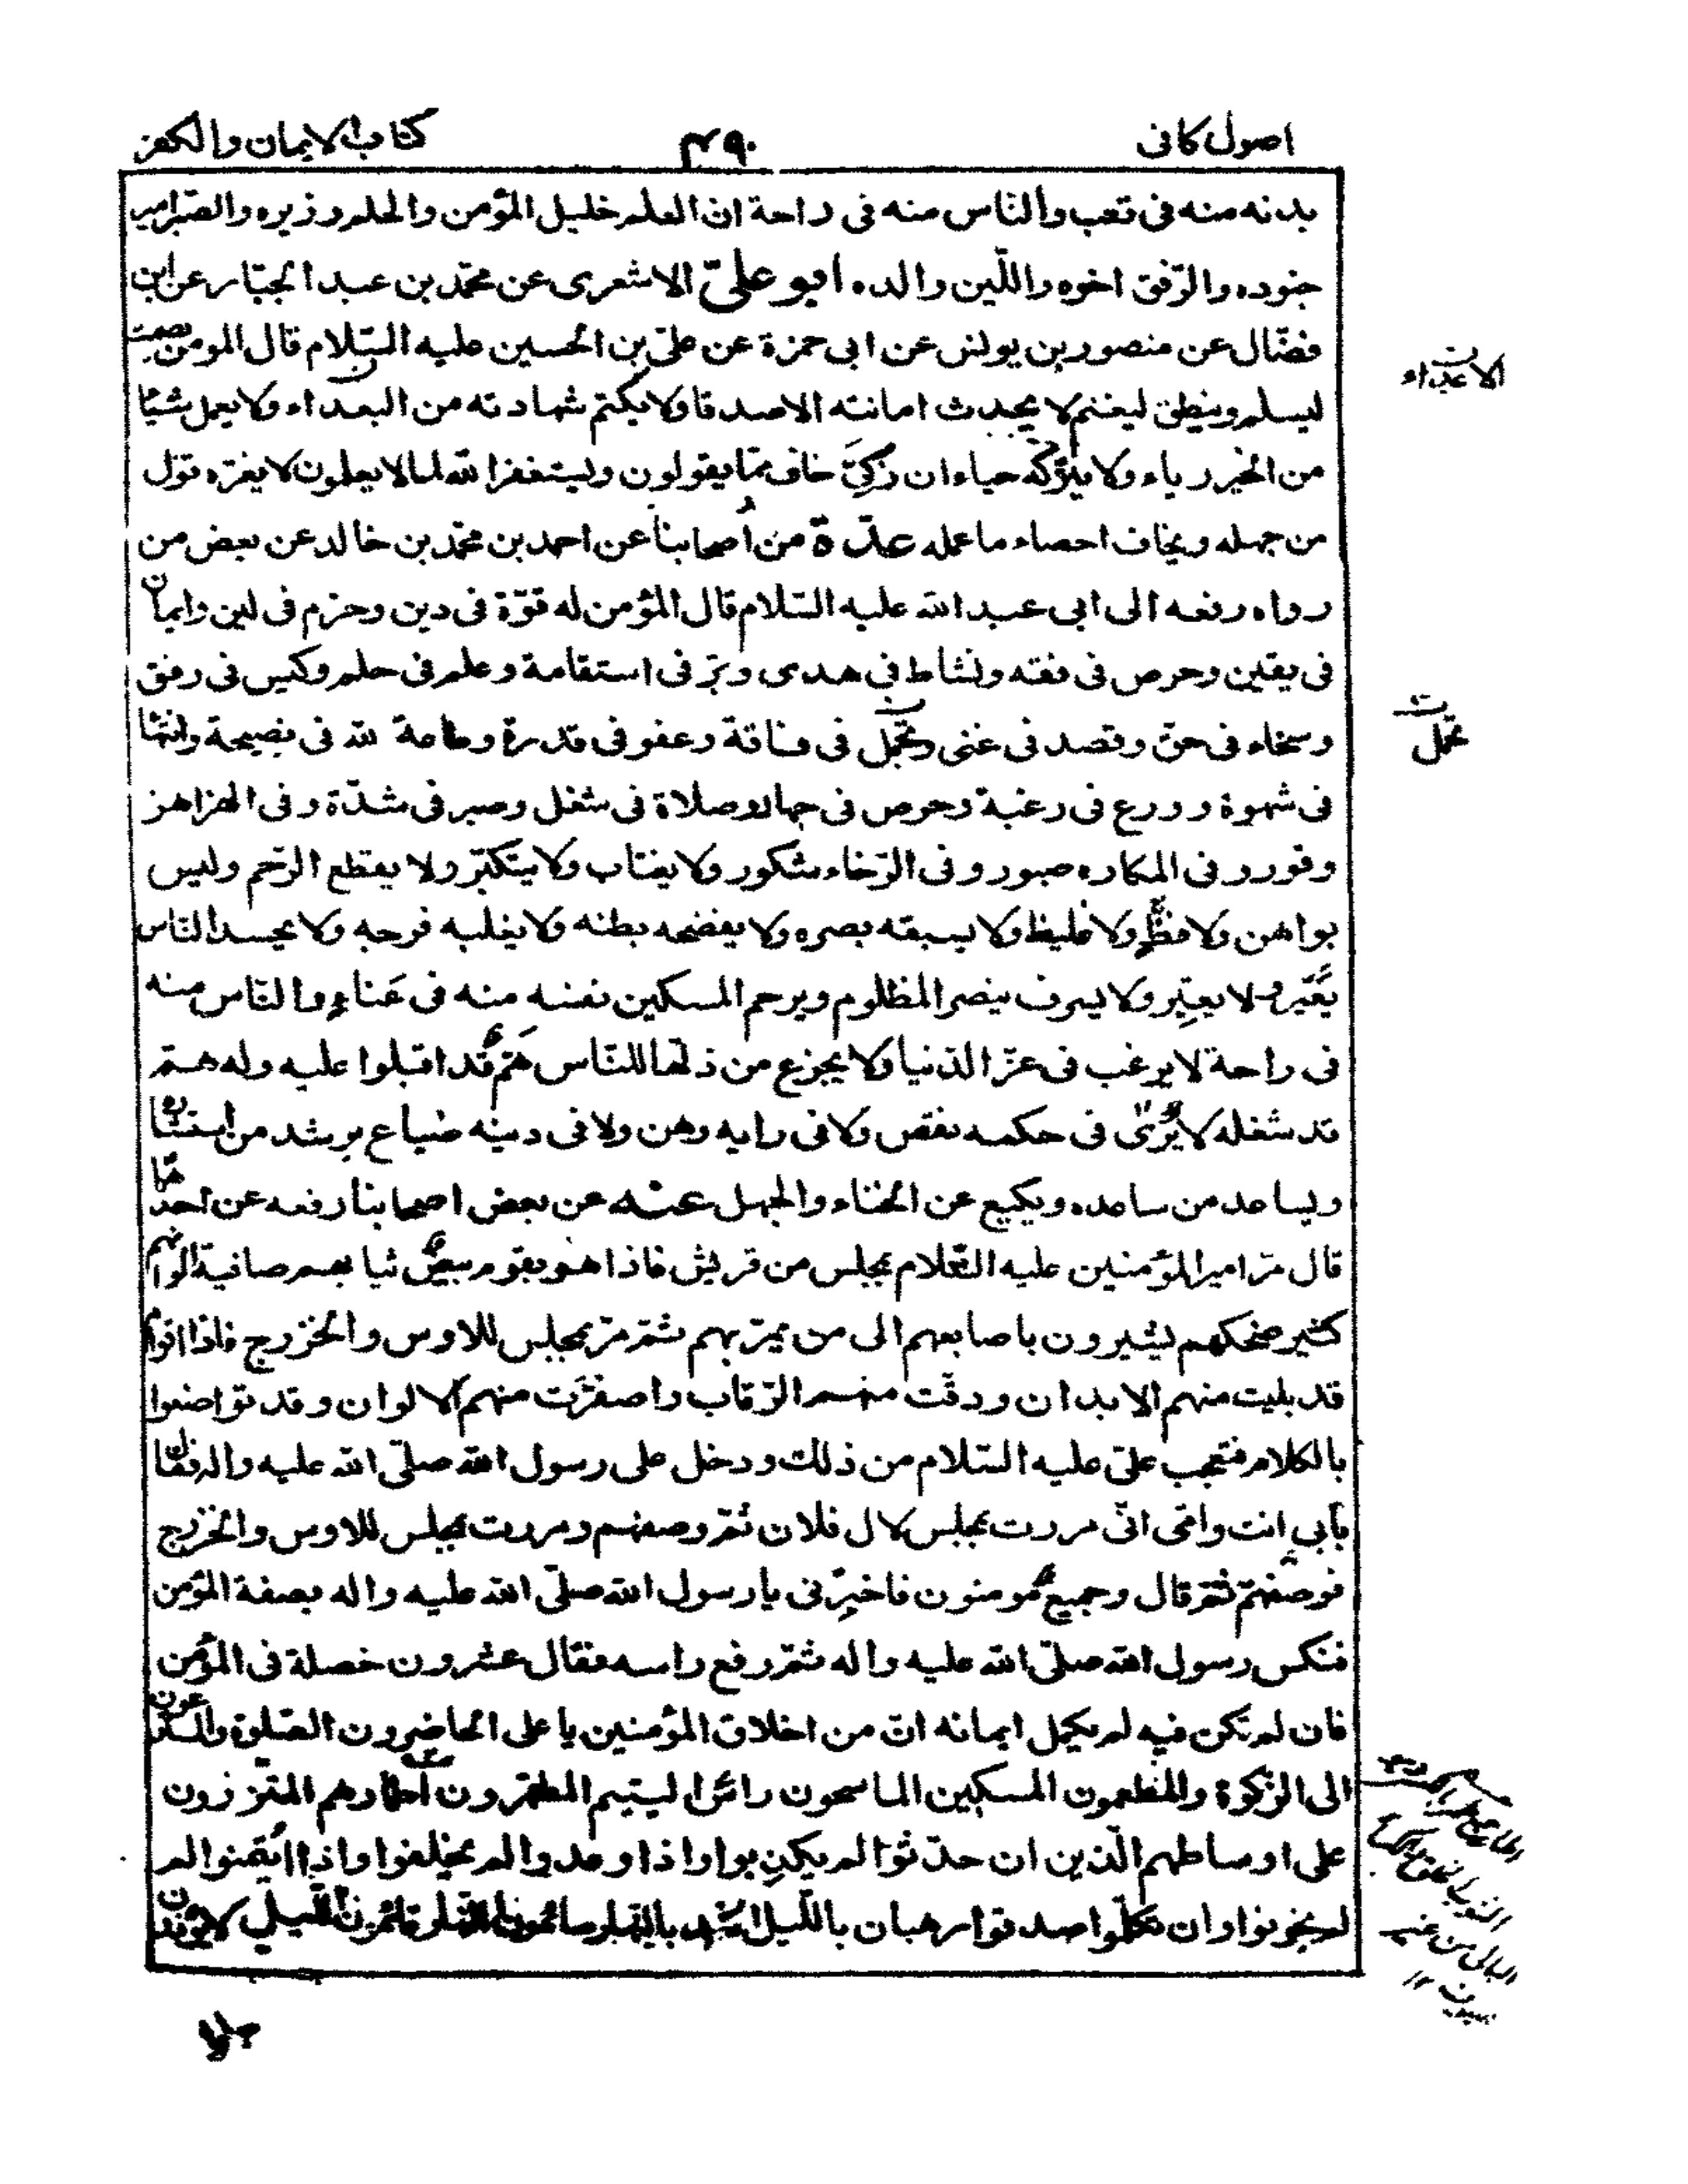 اصول كافى ۴۹۰ كتاب الايمان والكفر
بدنه منه فى تعب والنّاس منه فى راحة ان العلم خليل المؤمن والحلم وزيره والصّبر امير
جنوده والرّفق اخوه واللّين والده ابو علىّ الاشعرى عن محمّد بن عبد الجبّار عن ابن
فضّال عن منصور بن يونس عن ابى حمزة عن علىّ بن الحسين عليه السّلام قال المومن يصمت
ليسلم وينطق ليغنم لا يحدث امانته الاصدقا ولا يكتم شهادته من البعداء ولا يعمل شيئا
من الخير رياء ولا يتركه حياء ان زكىّ خاف ممّا يقولون ويستغفر الله لما لا يعلمون لا يغرّه قول
من جهله ويخاف احصاء ما عمله عدّة من اصحابنا عن احمد بن محمّد بن خالد عن بعض من
رواه رفعه الى ابى عبد الله عليه السّلام قال المؤمن له قوّة فى دين وحزم فى لين وايمان
فى يقين وحرص فى فقه ونشاط فى هدى وبرّ فى استقامة وعلم فى حلم وكيس فى رفق
وسخاء فى حق وقصد فى غنى وتجمّل فى فاقة وعفو فى قدرة وطاعة لله فى نصيحة وانتها
فى شهوة وورع فى رغبة وحرص فى جهاد وصلاة فى شغل وصبر فى شدّة وفى الهزاهز
وقور وفى المكاره صبور وفى الرّخاء شكور ولا يغتاب ولا يتكبّر ولا يقطع الرّحم وليس
بواهن ولا فظّ ولا غليظ ولا يسبقه بصره ولا يفضحه بطنه ولا يغلبه فرجه ولا يحسد النّاس
يعيّر ولا يعيّر ولا يسرف ينصر المظلوم ويرحم المسكين نفسه منه فى عناء والنّاس منه
فى راحة لا يرغب فى عزّ الدّنيا ولا يجزع من ذلّها للنّاس همّ قد اقبلوا عليه وله همّ
قد شغله لا يرى فى حكمه نقص ولا فى رايه وهن ولا فى دينه ضياع يرشد من استشاره
ويساعد من ساعده ويكيع عن الخناء والجهل عنه عن بعض اصحابنا رفعه عن احدهما
قال مرّ امير المؤمنين عليه السّلام بمجلس من قريش فاذا هو بقوم بيض ثيابهم صافية الوانهم
كثير ضحكهم يشيرون باصابعهم الى من يمرّ بهم ثمّ مرّ بمجلس للاوس والخزرج فاذا اقوام
قد بليت منهم الابدان ودقّت منهم الرّقاب واصفرّت منهم الالوان وقد تواضعوا
بالكلام فتعجب علىّ عليه السّلام من ذلك ودخل على رسول الله صلّى الله عليه واله فقال
بابى انت وامّى انّى مررت بمجلس لال فلان ثمّ وصفهم ومررت بمجلس للاوس والخزرج
فوصفهم ثمّ قال وجميع مومنون فاخبرنى يا رسول الله صلّى الله عليه واله بصفة المؤمن
فنكس رسول الله صلّى الله عليه واله ثمّ رفع راسه فقال عشرون خصلة فى المؤمن
فان لم تكن فيه لم يكمل ايمانه انّ من اخلاق المؤمنين يا على الحاضرون الصّلوة والمسارعون
الى الزّكوة والمطعمون المسكين الماسحون راس اليتيم المطهّرون اطمارهم المتّزرون
على اوساطهم الّذين ان حدّثوا لم يكذبوا واذا وعدوا لم يخلفوا واذا ائتمنوا لم
لم يخونوا وان تكلّموا صدقوا رهبان باللّيل اسد بالنهار صائمون النهار قائمون الليل لا يؤذون
الاعداء
تحمّل